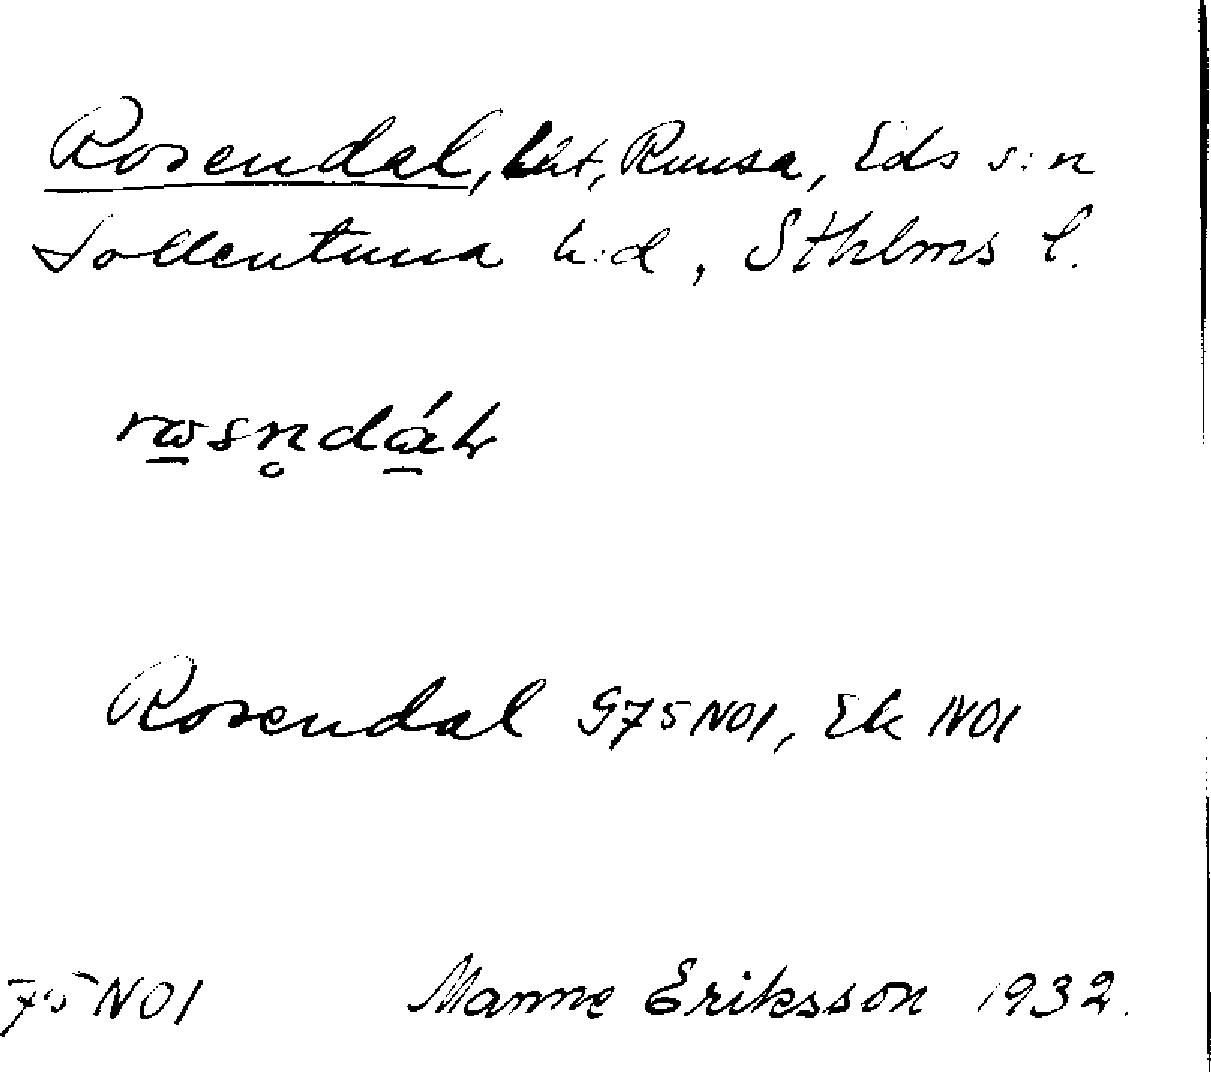 Rosendal, lht, Runsa, Eds s:n
Sollentuna h:d, Sthlms l.
Rosendal G75NO1, Ek NO1
75NO1 Manne Eriksson 1932.